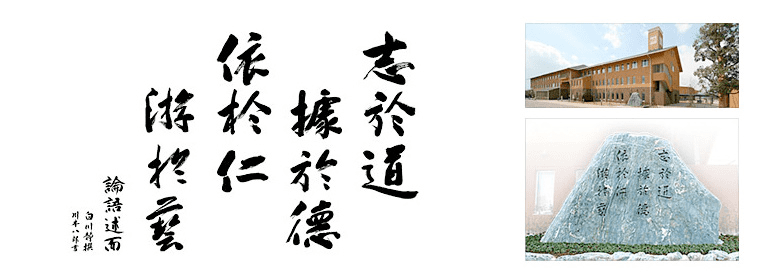 志於道
據於德
依於仁
游於藝
論語述而
白川靜撰
志於道
據於德
依於仁
游於藝